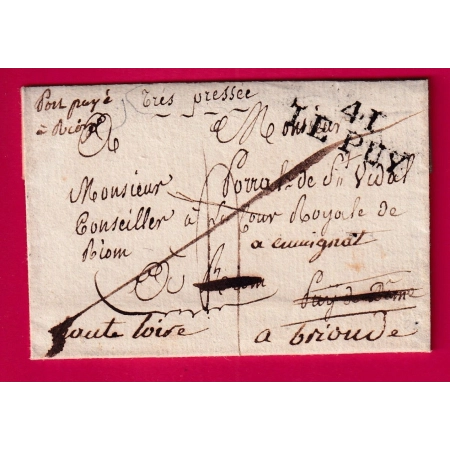 Port payé
à Riom
très pressée
41
LE PUY
A Monsieur
Monsieur Porral de St Vidal
Conseiller à la Cour Royale de
Riom
a
A Riom
Puy de Dôme
haute loire
a brioude